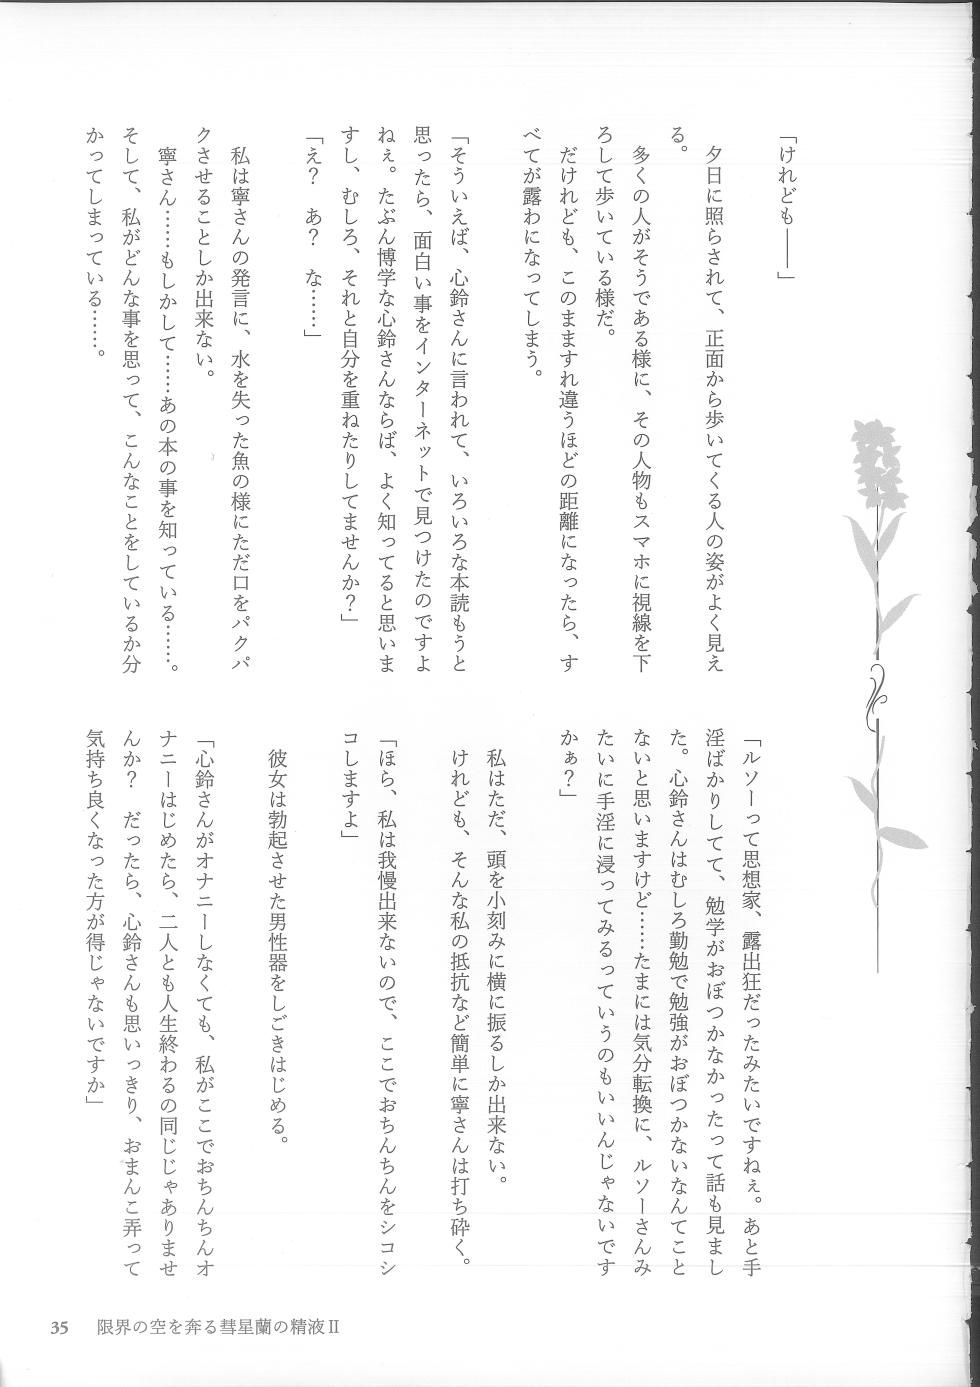 「けれども――」
夕日に照らされて、正面から歩いてくる人の姿がよく見え
る。
多くの人がそうである様に、その人物もスマホに視線を下
ろして歩いている様だ。
だけれども、このまますれ違うほどの距離になったら、す
べてが露わになってしまう。
「そういえば、心鈴さんに言われて、いろいろな本読もうと
思ったら、面白い事をインターネットで見つけたのですよ
ねぇ。たぶん博学な心鈴さんならば、よく知ってると思いま
すし、むしろ、それと自分を重ねたりしてませんか？」
「え？　あ？　な……」
私は寧さんの発言に、水を失った魚の様にただ口をパクパ
クさせることしか出来ない。
寧さん……もしかして……あの本の事を知っている……。
そして、私がどんな事を思って、こんなことをしているか分
かってしまっている……。
「ルソーって思想家、露出狂だったみたいですねぇ。あと手
淫ばかりしてて、勉学がおぼつかなかったって話も見まし
た。心鈴さんはむしろ勤勉で勉強がおぼつかないなんてこと
ないと思いますけど……たまには気分転換に、ルソーさんみ
たいに手淫に浸ってみるっていうのもいいんじゃないです
かぁ？」
私はただ、頭を小刻みに横に振るしか出来ない。
けれども、そんな私の抵抗など簡単に寧さんは打ち砕く。
「ほら、私は我慢出来ないので、ここでおちんちんをシコシ
コしますよ」
彼女は勃起させた男性器をしごきはじめる。
「心鈴さんがオナニーしなくても、私がここでおちんちんオ
ナニーはじめたら、二人とも人生終わるの同じじゃありませ
んか？　だったら、心鈴さんも思いっきり、おまんこ弄って
気持ち良くなった方が得じゃないですか」
35　限界の空を奔る彗星蘭の精液Ⅱ